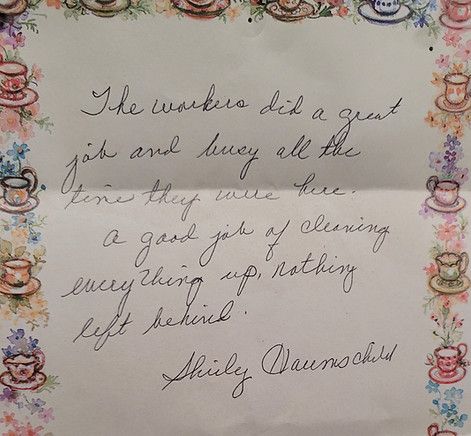 The workers did a great
job and busy all the
time they were here.
A good job of cleaning
everything up, nothing
left behind.
Shirly Naumschild